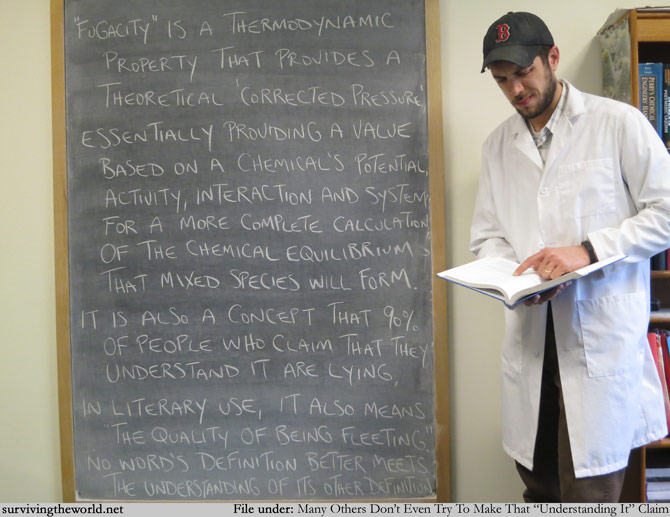 "FUGACITY" IS A THERMODYNAMIC
PROPERTY THAT PROVIDES A
THEORETICAL 'CORRECTED PRESSURE'
ESSENTIALLY PROVIDING A VALUE
BASED ON A CHEMICAL'S POTENTIAL,
ACTIVITY, INTERACTION AND SYSTEM,
FOR A MORE COMPLETE CALCULATION
OF THE CHEMICAL EQUILIBRIUM
THAT MIXED SPECIES WILL FORM.
IT IS ALSO A CONCEPT THAT 90%
OF PEOPLE WHO CLAIM THAT THEY
UNDERSTAND IT ARE LYING.
IN LITERARY USE, IT ALSO MEANS
"THE QUALITY OF BEING FLEETING"
NO WORD'S DEFINITION BETTER MEETS
THE UNDERSTANDING OF ITS OTHER DEFINITION
B
PERRY'S CHEMICAL
ENGINEERS'
survivingtheworld.net
File under: Many Others Don't Even Try To Make That "Understanding It" Claim